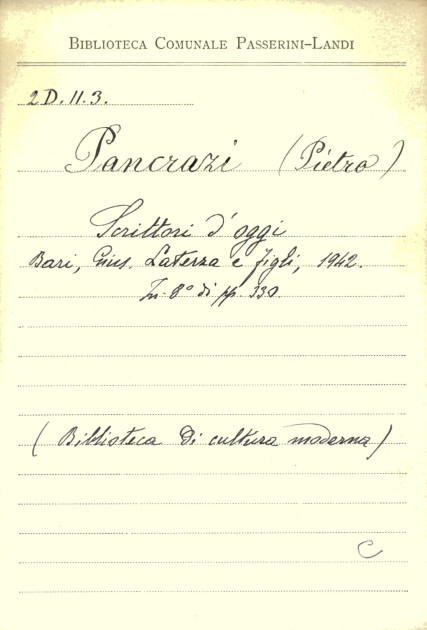 BIBLIOTECA COMUNALE PASSERINI-LANDI
2 D. 11. 3.
Pancrazi (Pietro)
Scrittori d'oggi
Bari, Gius. Laterza e figli, 1942.
In-8° di pp. 330.
(Biblioteca di cultura moderna)
C